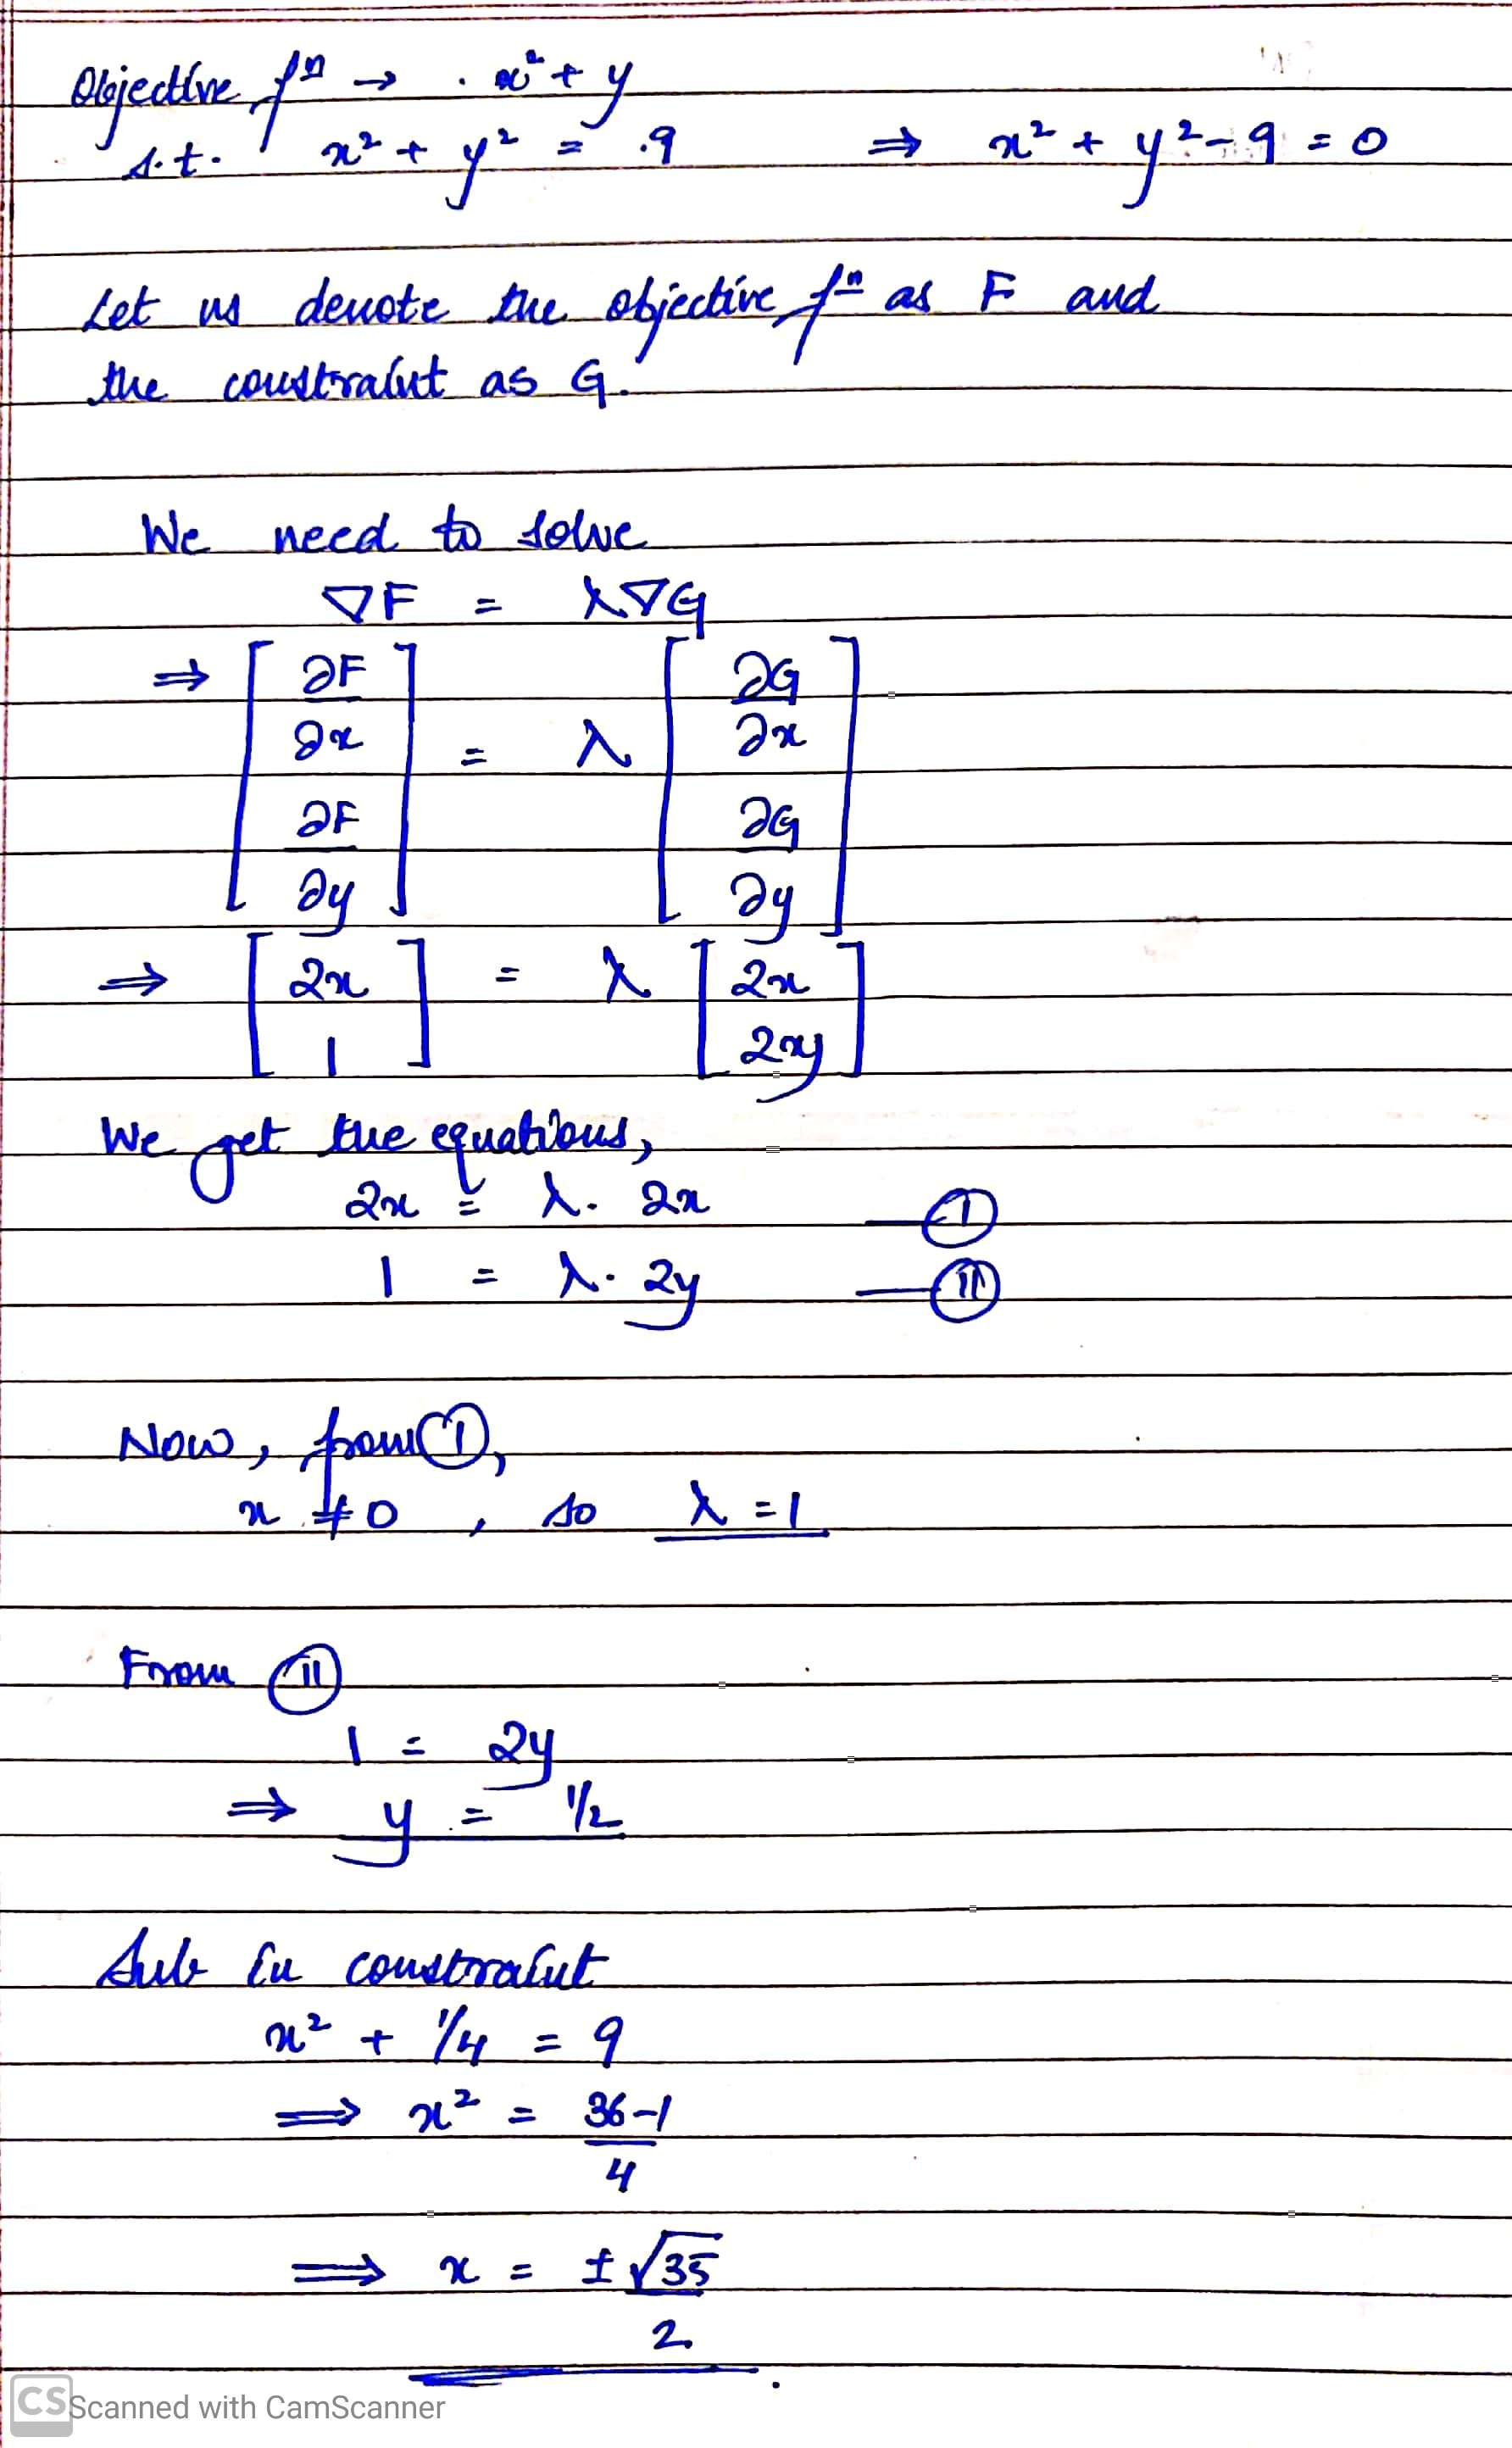 Objective fⁿ → x² + y
s.t. x² + y² = 9 ⇒ x² + y² - 9 = 0
Let us denote the objective fⁿ as F and
the constraint as G.
We need to solve
∇F = λ∇G
⇒ [ ∂F/∂x ; ∂F/∂y ] = λ [ ∂G/∂x ; ∂G/∂y ]
⇒ [ 2x ; 1 ] = λ [ 2x ; 2y ]
We get the equations,
2x = λ. 2x — (I)
1 = λ. 2y — (II)
Now, from (I),
x ≠ 0, so λ = 1
From (II)
1 = 2y
⇒ y = 1/2
Sub in constraint
x² + 1/4 = 9
⇒ x² = (36-1)/4
⇒ x = ± √35/2
CS Scanned with CamScanner